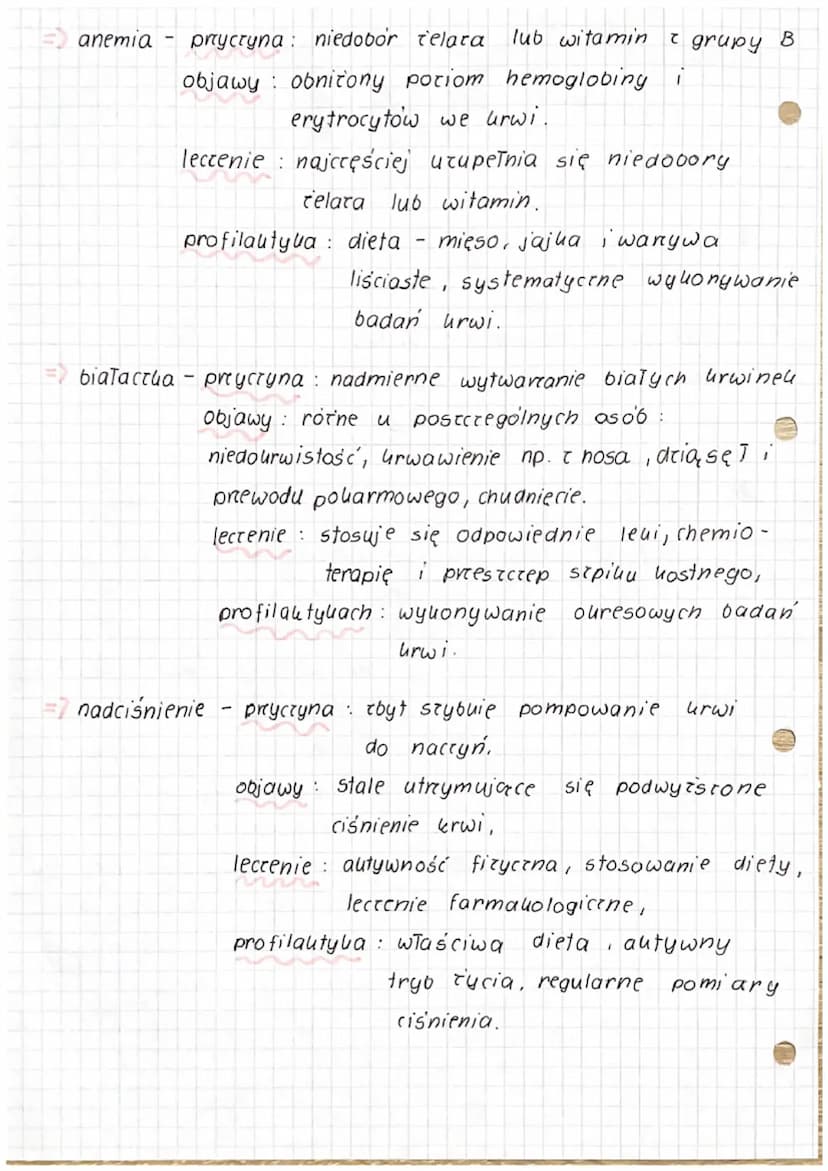 => anemia - przyczyna : niedobór żelaza lub witamin z grupy B
objawy : obniżony poziom hemoglobiny i
erytrocytów we krwi.
leczenie : najczęściej uzupełnia się niedobory
żelaza lub witamin.
profilaktyka : dieta - mięso, jajka i warzywa
liściaste, systematyczne wykonywanie
badań krwi.
=> białaczka - przyczyna : nadmierne wytwarzanie białych krwinek
objawy : różne u poszczególnych osób :
niedokrwistość, krwawienie np. z nosa, dziąseł i
przewodu pokarmowego, chudnięcie.
leczenie : stosuje się odpowiednie leki, chemio-
terapię i przeszczep szpiku kostnego,
profilaktykach : wykonywanie okresowych badań
krwi.
=> nadciśnienie - przyczyna : zbyt szybkie pompowanie krwi
do naczyń.
objawy : stale utrzymujące się podwyższone
ciśnienie krwi,
leczenie : aktywność fizyczna, stosowanie diety,
leczenie farmakologiczne,
profilaktyka : właściwa dieta, aktywny
tryb życia, regularne pomiary
ciśnienia.